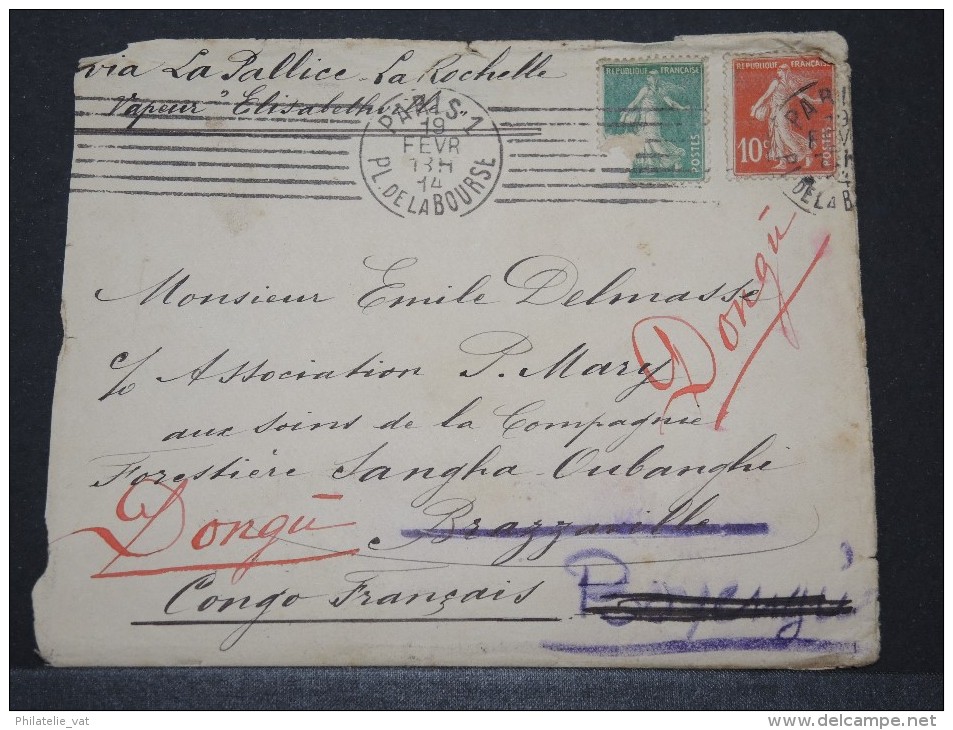 via La Pallice - La Rochelle
Vapeur "Elisabethville"
PARIS-1
19
FEVR
13H
14
PL. DE LA BOURSE
REPUBLIQUE FRANÇAISE
POSTES
REPUBLIQUE FRANÇAISE
10c
POSTES
PARI
DE LA B
Monsieur Emile Delmasse
c/o Association P. Mary
aux soins de la Compagnie
Forestière Sangha-Oubanghi
Brazzaville
Congo Français
Dongū
Dongū
Philatelie_vat
www.delcampe.net